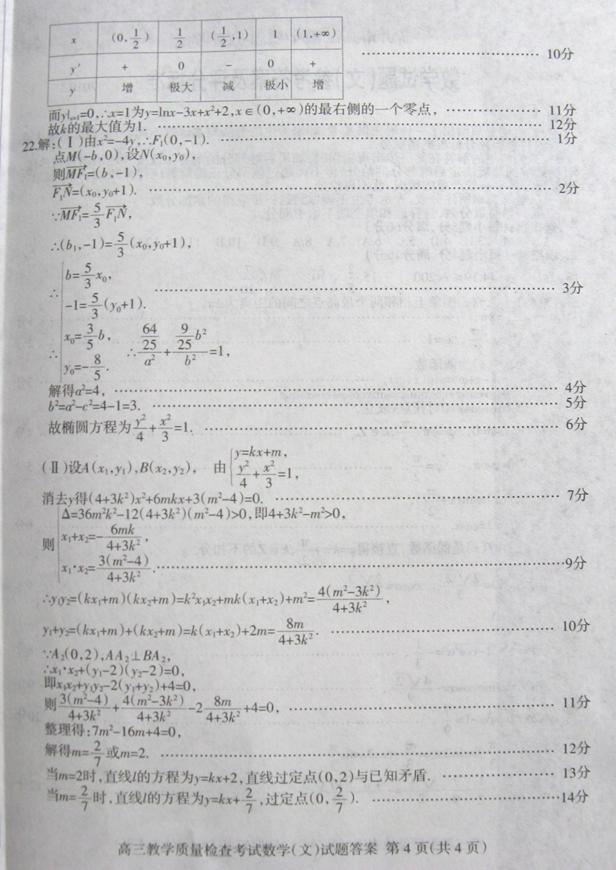 x (0,1/2) 1/2 (1/2,1) 1 (1,+∞)
y′ + 0 - 0 + ……10分
y 增 极大 减 极小 增
而y|ₓ₌₁=0,∴x=1为y=lnx-3x+x²+2,x∈(0,+∞)的最右侧的一个零点, ……11分
故k的最大值为1. ……12分
22.解:(Ⅰ)由x²=-4y,∴F₁(0,-1). ……1分
点M(-b,0),设N(x₀,y₀),
则MF₁=(b,-1),
F₁N=(x₀,y₀+1). ……2分
∵MF₁=5/3 F₁N,
∴(b₁,-1)=5/3(x₀,y₀+1),
∴{b=5/3 x₀,
-1=5/3(y₀+1). ……3分
∴{x₀=3/5 b, ∴(64/25)/a²+(9/25 b²)/b²=1,
y₀=-8/5.
解得a²=4, ……4分
b²=a²-c²=4-1=3. ……5分
故椭圆方程为y²/4+x²/3=1. ……6分
(Ⅱ)设A(x₁,y₁),B(x₂,y₂), 由{y=kx+m,
y²/4+x²/3=1,
消去y得(4+3k²)x²+6mkx+3(m²-4)=0. ……7分
则{Δ=36m²k²-12(4+3k²)(m²-4)>0,即4+3k²-m²>0,
x₁+x₂=-6mk/(4+3k²),
x₁·x₂=3(m²-4)/(4+3k²). ……9分
∴y₁y₂=(kx₁+m)(kx₂+m)=k²x₁x₂+mk(x₁+x₂)+m²=4(m²-3k²)/(4+3k²),
y₁+y₂=(kx₁+m)+(kx₂+m)=k(x₁+x₂)+2m=8m/(4+3k²). ……10分
∵A₂(0,2),AA₂⊥BA₂,
∴x₁·x₂+(y₁-2)(y₂-2)=0,
即x₁x₂+y₁y₂-2(y₁+y₂)+4=0,
则3(m²-4)/(4+3k²)+4(m²-3k²)/(4+3k²)-2 8m/(4+3k²)+4=0, ……11分
整理得:7m²-16m+4=0,
解得m=2/7或m=2. ……12分
当m=2时,直线l的方程为y=kx+2,直线过定点(0,2)与已知矛盾. ……13分
当m=2/7时,直线l的方程为y=kx+2/7,过定点(0,2/7). ……14分
高三教学质量检查考试数学(文)试题答案 第4页(共4页)